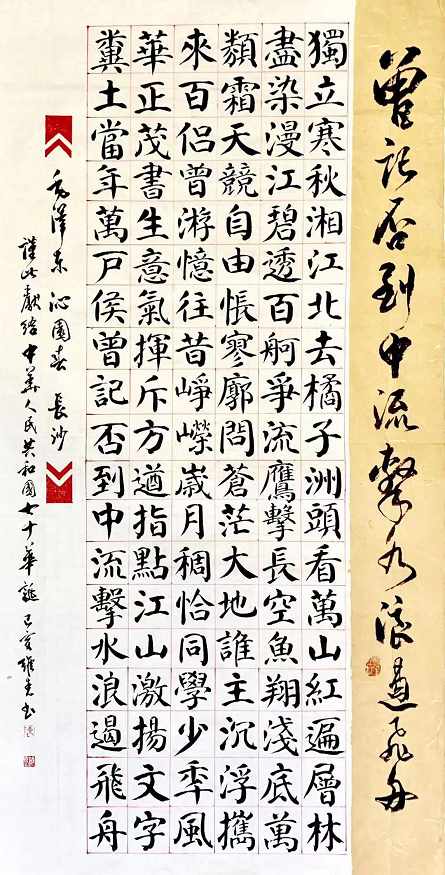 曾記否到中流擊水浪遏飛舟
獨立寒秋湘江北去橘子洲頭看萬山紅遍層林
盡染漫江碧透百舸爭流鷹擊長空魚翔淺底萬
類霜天競自由悵寥廓問蒼茫大地誰主沉浮攜
來百侶曾游憶往昔崢嶸歲月稠恰同學少秊風
華正茂書生意氣揮斥方遒指點江山激揚文字
糞土當年萬戶侯曾記否到中流擊水浪遏飛舟
毛澤東 沁園春 長沙
謹此獻給中華人民共和國七十華誕 己亥雄書